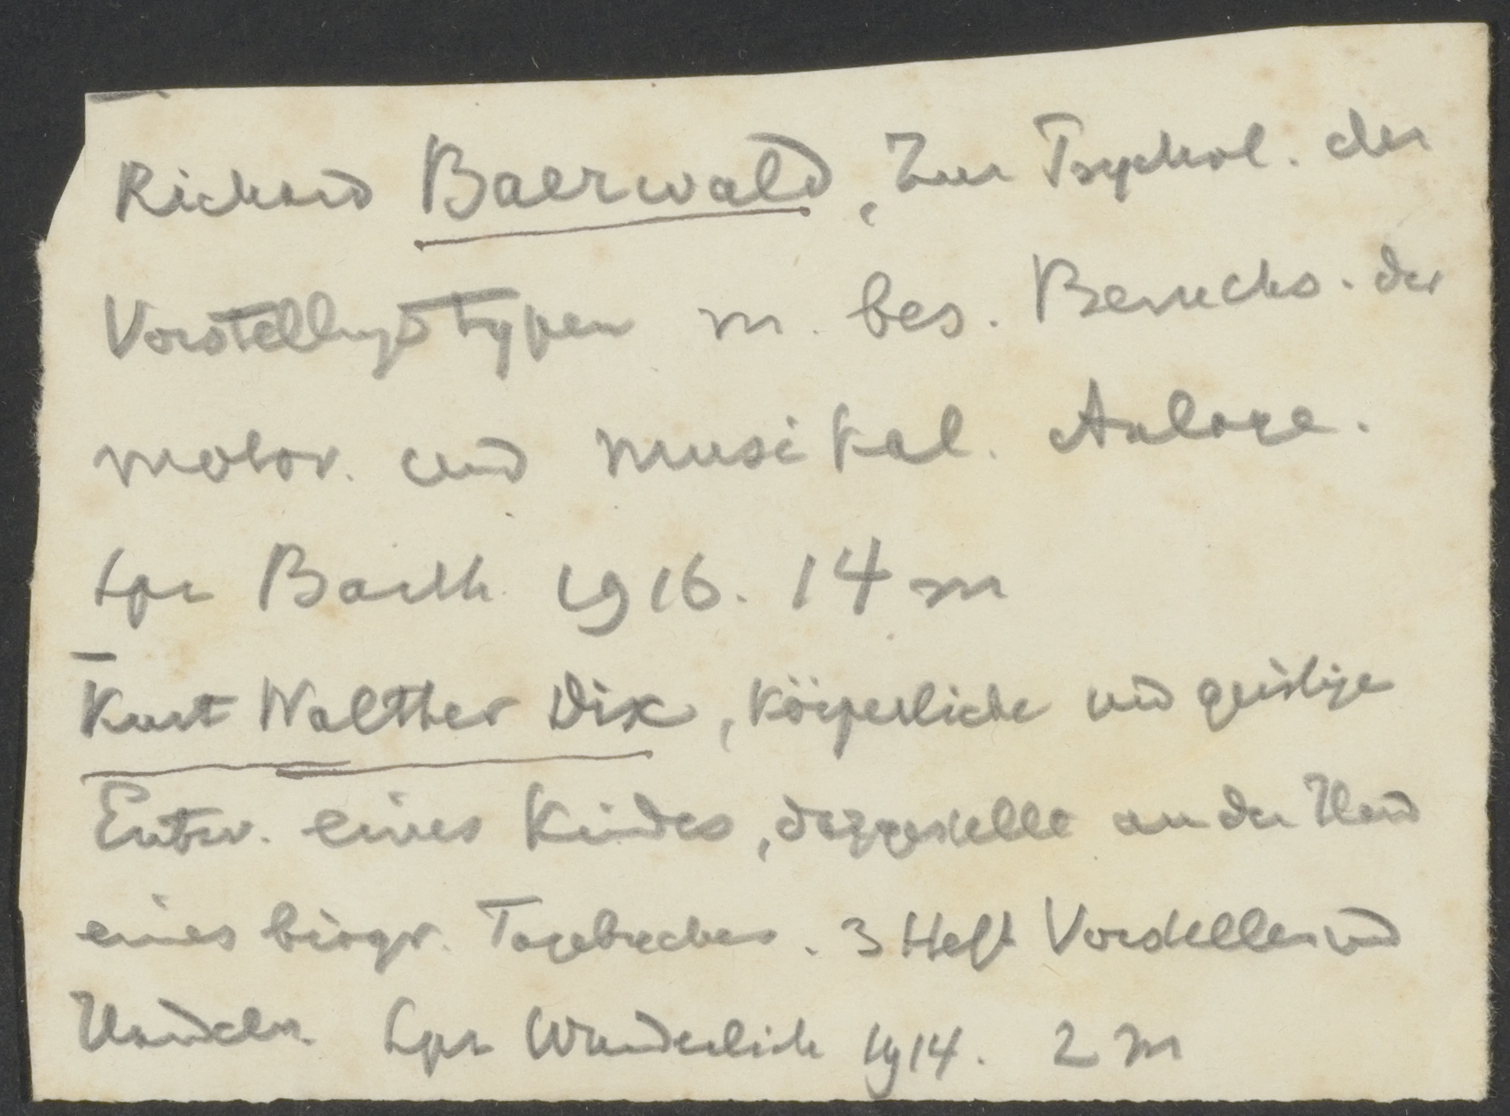 Richard Baerwald, Zur Psychol. der
Vorstellungstypen m. bes. Berücks. der
motor. und musikal. Anlage.
Lpz Barth 1916. 14 M
Kurt Walther Dix, Körperliche und geistige
Entw. eines Kindes, dargestellt an der Hand
eines biogr. Tagebuches. 3 Heft Vorstellen und
Handeln. Lpz Wunderlich 1914. 2 M